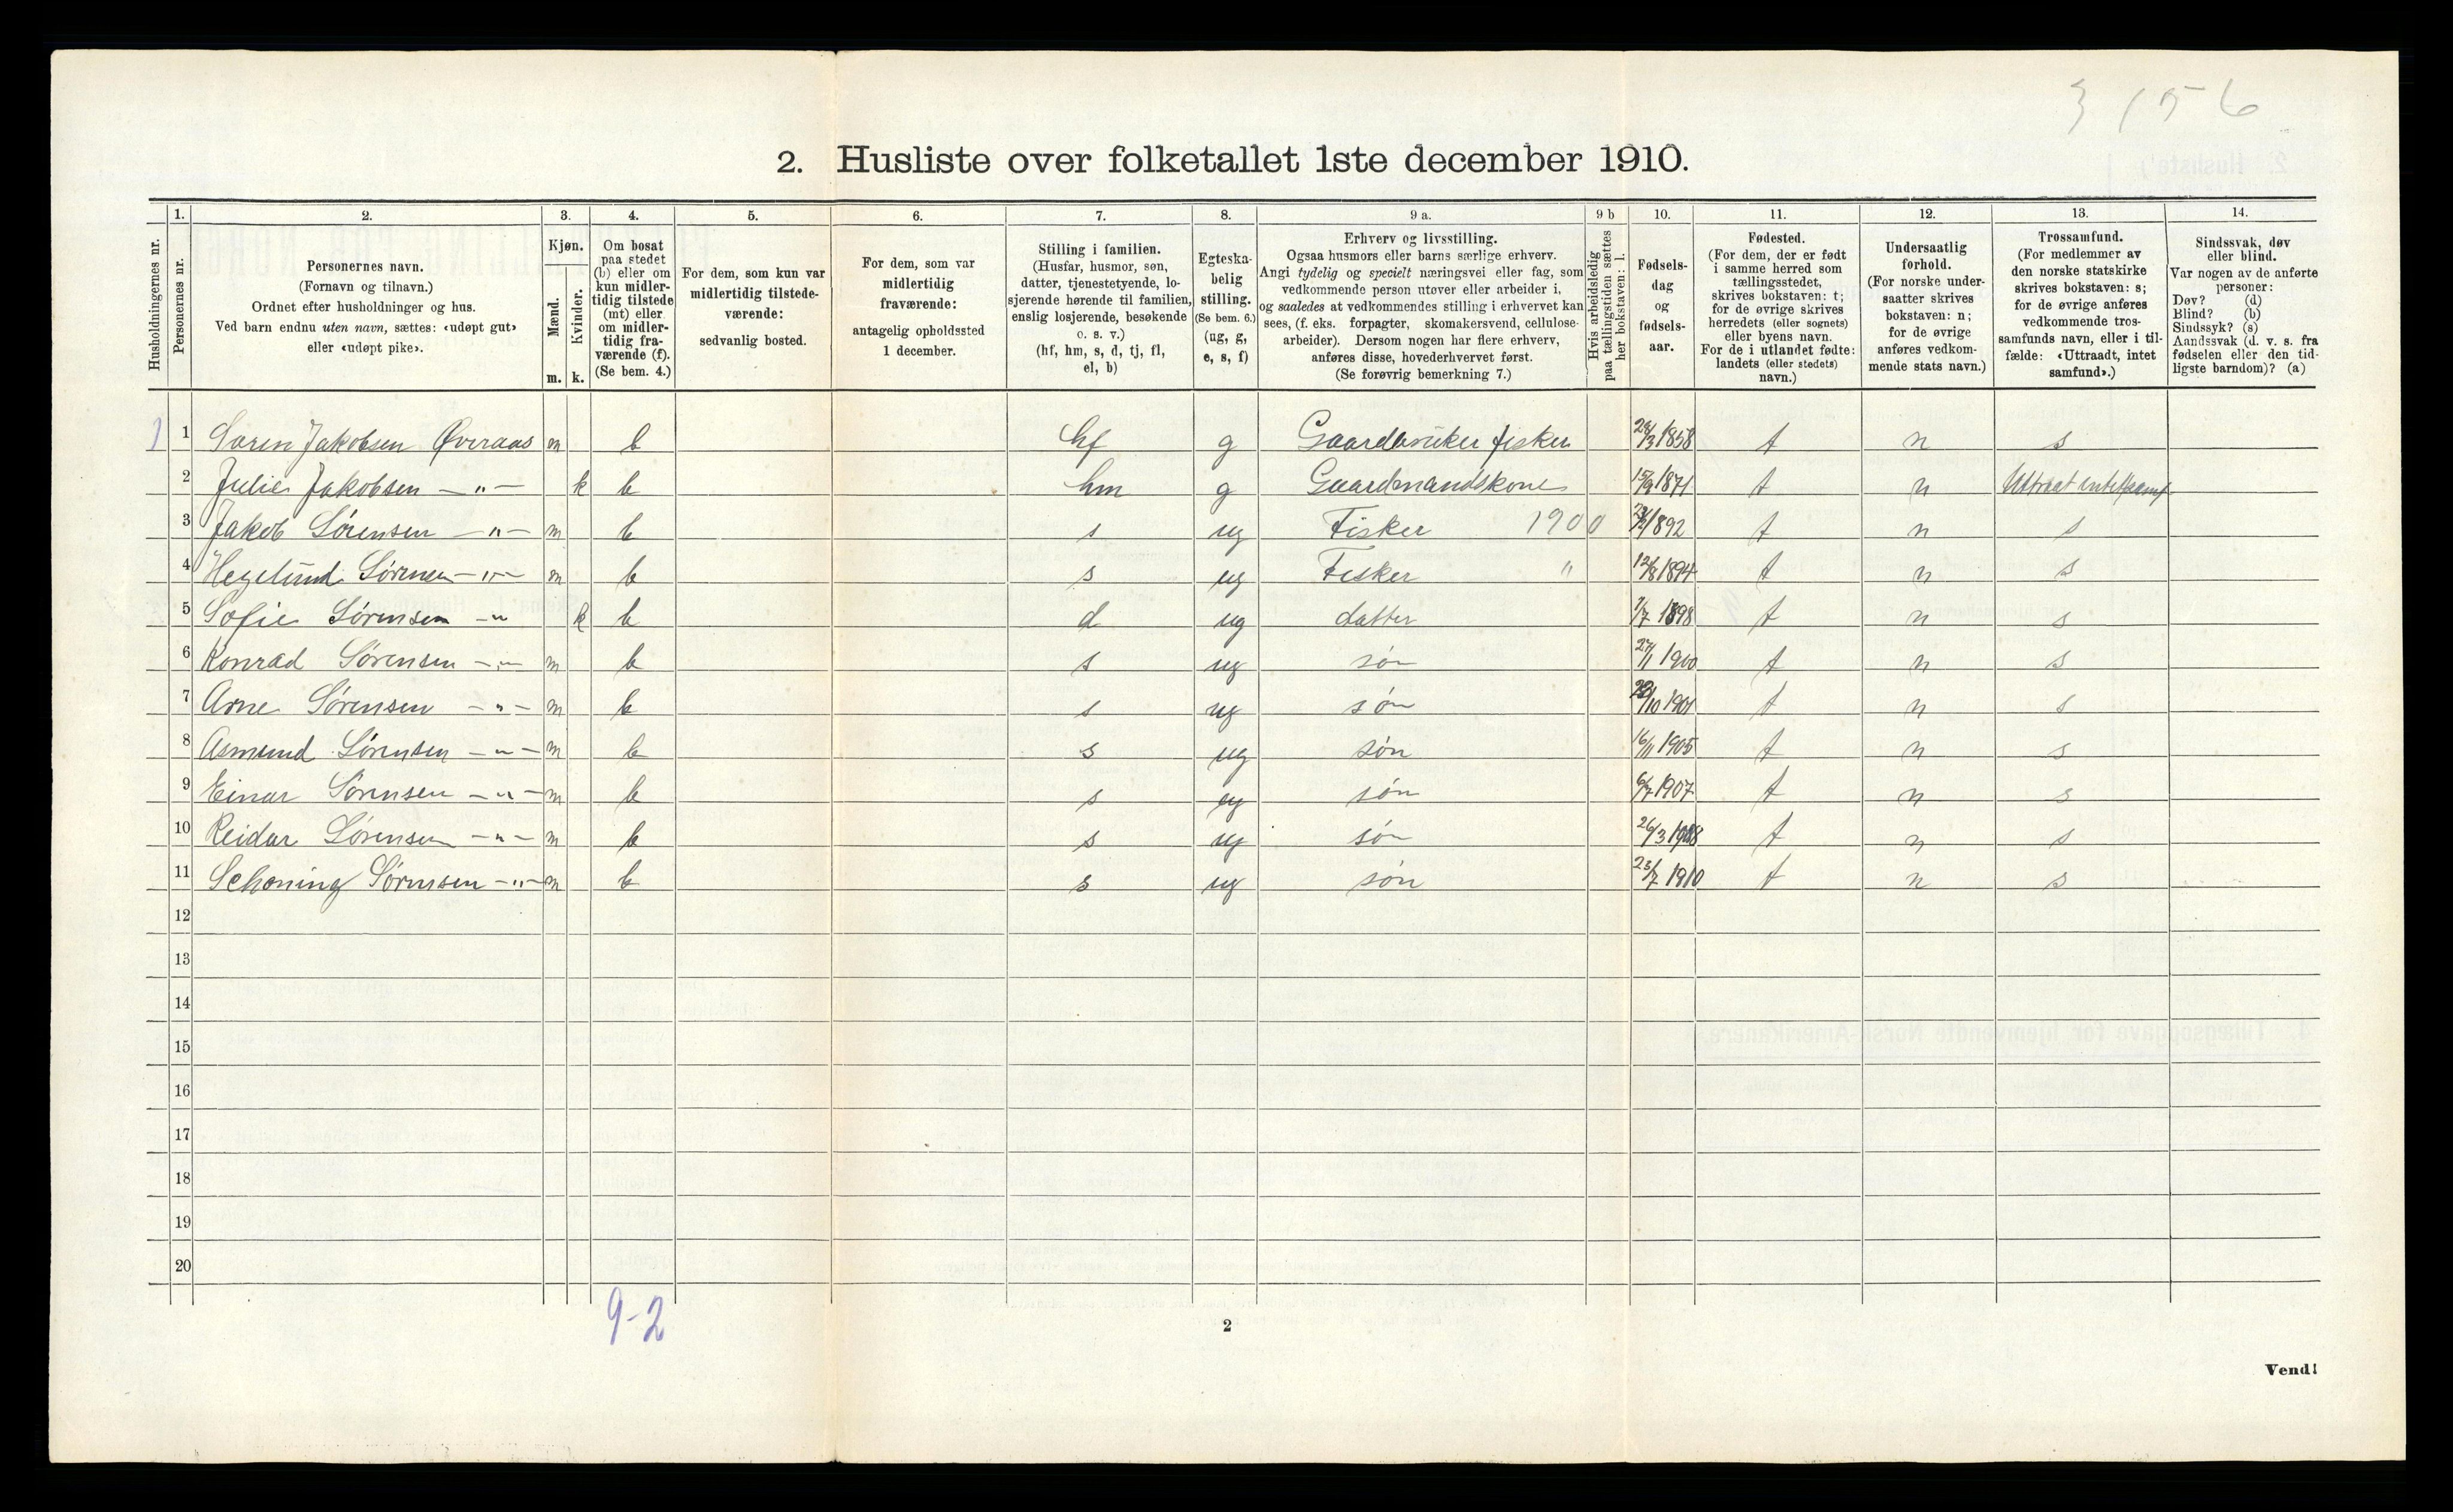 3 156
2. Husliste over folketallet 1ste december 1910.
Husholdningernes nr.
1. Personernes nr.
2. Personernes navn. (Fornavn og tilnavn.) Ordnet efter husholdninger og hus. Ved barn endnu uten navn, sættes: «udøpt gut» eller «udøpt pike».
3. Kjøn. Mænd. m. Kvinder. k.
4. Om bosat paa stedet (b) eller om kun midlertidig tilstede (mt) eller om midlertidig fraværende (f). (Se bem. 4.)
5. For dem, som kun var midlertidig tilstedeværende: sedvanlig bosted.
6. For dem, som var midlertidig fraværende: antagelig opholdssted 1 december.
7. Stilling i familien. (Husfar, husmor, søn, datter, tjenestetyende, losjerende hørende til familien, enslig losjerende, besøkende o. s. v.) (hf, hm, s, d, tj, fl, el, b)
8. Egteskabelig stilling. (Se bem. 6.) (ug, g, e, s, f)
9 a. Erhverv og livsstilling. Ogsaa husmors eller barns særlige erhverv. Angi tydelig og specielt næringsvei eller fag, som vedkommende person utover eller arbeider i, og saaledes at vedkommendes stilling i erhvervet kan sees, (f. eks. forpagter, skomakersvend, cellulosearbeider). Dersom nogen har flere erhverv, anføres disse, hovederhvervet først. (Se forøvrig bemerkning 7.)
9 b Hvis arbeidsledig paa tællingstiden sættes her bokstaven: l.
10. Fødselsdag og fødselsaar.
11. Fødested. (For dem, der er født i samme herred som tællingsstedet, skrives bokstaven: t; for de øvrige skrives herredets (eller sognets) eller byens navn. For de i utlandet fødte: landets (eller stedets) navn.)
12. Undersaatlig forhold. (For norske undersaatter skrives bokstaven: n; for de øvrige anføres vedkommende stats navn.)
13. Trossamfund. (For medlemmer av den norske statskirke skrives bokstaven: s; for de øvrige anføres vedkommende trossamfunds navn, eller i tilfælde: «Uttraadt, intet samfund».)
14. Sindssvak, døv eller blind. Var nogen av de anførte personer: Døv? (d) Blind? (b) Sindssyk? (s) Aandssvak (d. v. s. fra fødselen eller den tidligste barndom)? (a)
1 1 Søren Jakobsen Øveraas m b hf g Gaardbruker fisker 1858 t n s
2 Julie Jakobsen — " — k b hm g Gaardmandskone 15/9 1871 t n Uttraat intet samf
3 Jakob Sørensen — " — m b s ug Fisker 1900 1892 t n s
4 Hegelund Sørensen — " — m b s ug Fisker " 12/8 1894 t n s
5 Sofie Sørensen — " k b d ug datter 1/7 1898 t n s
6 Konrad Sørensen — " — m b s ug søn 27/11 1900 t n s
7 Arne Sørensen — " — m b s ug søn 29/10 1901 t n s
8 Asmund Sørensen — " — m b s ug søn 16/11 1905 t n s
9 Einar Sørensen — " — m b s ug søn 6/7 1907 t n s
10 Reidar Sørensen — " — m b s ug søn 26/3 1908 t n s
11 Schøning Sørensen — " — m b s ug søn 23/7 1910 t n s
12
13
14
15
16
17
18
19
20
9-2
2
Vend!